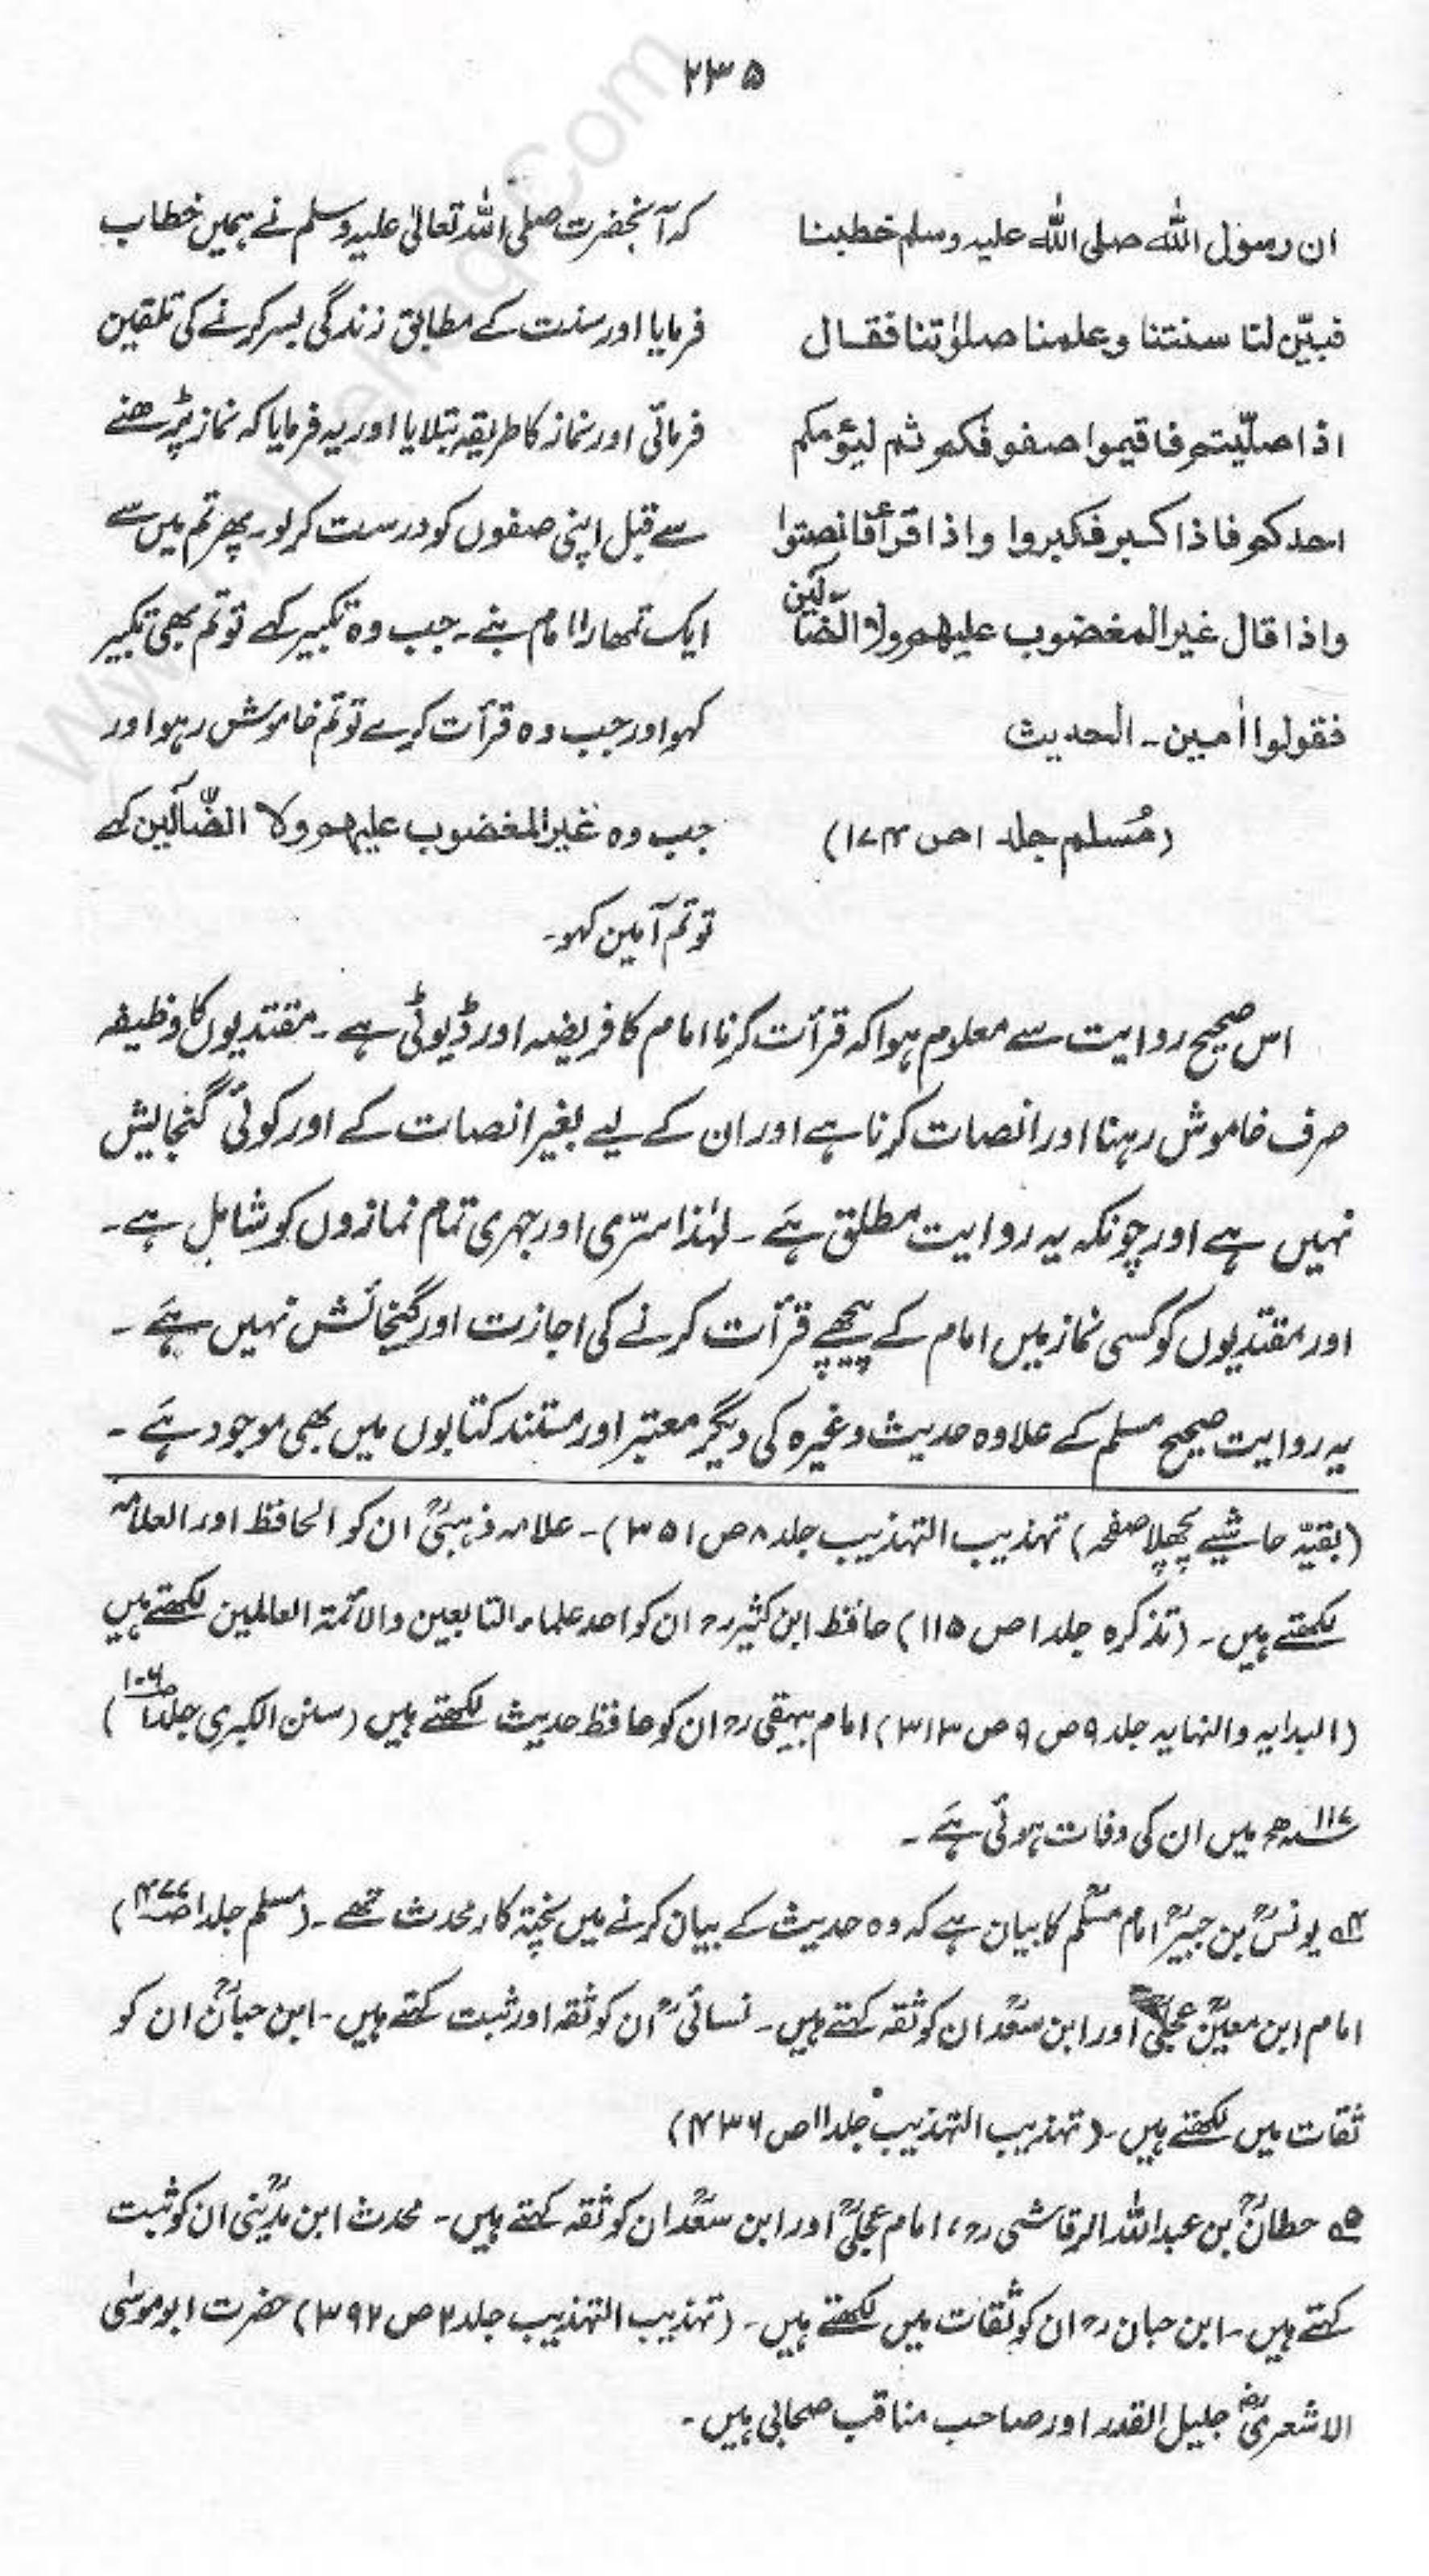 ۲۳۵
ان رسول اللّٰه صلى اللّٰه عليه وسلم خطبنا
فبيّن لنا سنتنا وعلمنا صلوٰتنا فقال
اذا صلّيتم فاقيموا صفوفكم ثم ليؤمكم
احدكم فاذا كبر فكبروا واذا قرأ فانصتوا
واذا قال غير المغضوب عليهم ولا الضالّين
فقولوا اٰمين۔ الحديث
(مُسلم جلد ۱ ص ۱۷۴)
کہ آنحضرت صلی اللہ تعالیٰ علیہ وسلم نے ہمیں خطاب
فرمایا اور سنت کے مطابق زندگی بسر کرنے کی تلقین
فرمائی اور نماز کا طریقہ بتلایا اور یہ فرمایا کہ نماز پڑھنے
سے قبل اپنی صفوں کو درست کر لو۔ پھر تم میں سے
ایک تمھارا امام بنے۔ جب وہ تکبیر کہے تو تم بھی تکبیر
کہو اور جب وہ قرأت کرے تو تم خاموش رہو اور
جب وہ غیر المغضوب علیہم ولا الضّآلّین کہے
تو تم آمین کہو۔
اس صحیح روایت سے معلوم ہوا کہ قرأت کرنا امام کا فریضہ اور ڈیوٹی ہے۔ مقتدیوں کا وظیفہ
صرف خاموش رہنا اور انصات کرنا ہے اور ان کے لیے بغیر انصات کے اور کوئی گنجایش
نہیں ہے اور چونکہ یہ روایت مطلق ہَے۔ لہٰذا سرّی اور جہری تمام نمازوں کو شامل ہے۔
اور مقتدیوں کو کسی نماز میں امام کے پیچھے قرأت کرنے کی اجازت اور گنجائش نہیں ہَے۔
یہ روایت صحیح مسلم کے علاوہ حدیث وغیرہ کی دیگر معتبر اور مستند کتابوں میں بھی موجود ہَے۔
(بقیّہ حاشیے پچھلا صفحہ) تہذیب التہذیب جلد ۸ ص ۳۵۱)۔ علامہ ذہبیؒ ان کو الحافظ اور العلامہ
لکھتے ہیں۔ (تذکرہ جلد ۱ ص ۱۱۵) حافظ ابن کثیرؒ ان کو احد علماء التابعین والائمۃ العالمین لکھتے ہیں
(البدایہ والنہایہ جلد ۹ ص ۹ ص ۳۱۳) امام بیہقیؒ ان کو حافظ حدیث لکھتے ہیں (سنن الکبری جلد ۱ ص ۱۰۶)
۱۱۷ھ میں ان کی وفات ہوئی ہَے۔
۴؎ یونسؒ بن جبیرؒ امام مسلمؒ کا بیان ہے کہ وہ حدیث کے بیان کرنے میں پختہ کار محدث تھے۔ (مسلم جلد ۱ ص ۴۷۷)
امام ابن معینؒ عجلیؒ اور ابن سعدؒ ان کو ثقہ کہتے ہیں۔ نسائیؒ ان کو ثقہ اور ثبت کہتے ہیں۔ ابن حبانؒ ان کو
ثقات میں لکھتے ہیں۔ (تہذیب التہذیب جلد ۱۱ ص ۴۳۶)
۵؎ حطانؒ بن عبداللہ الرقاشیؒ، امام عجلیؒ اور ابن سعدؒ ان کو ثقہ کہتے ہیں۔ محدث ابن مدینیؒ ان کو ثبت
کہتے ہیں۔ ابن حبانؒ ان کو ثقات میں لکھتے ہیں۔ (تہذیب التہذیب جلد ۲ ص ۳۹۲) حضرت ابوموسٰی
الاشعریؓ جلیل القدر اور صاحب مناقب صحابی ہیں۔